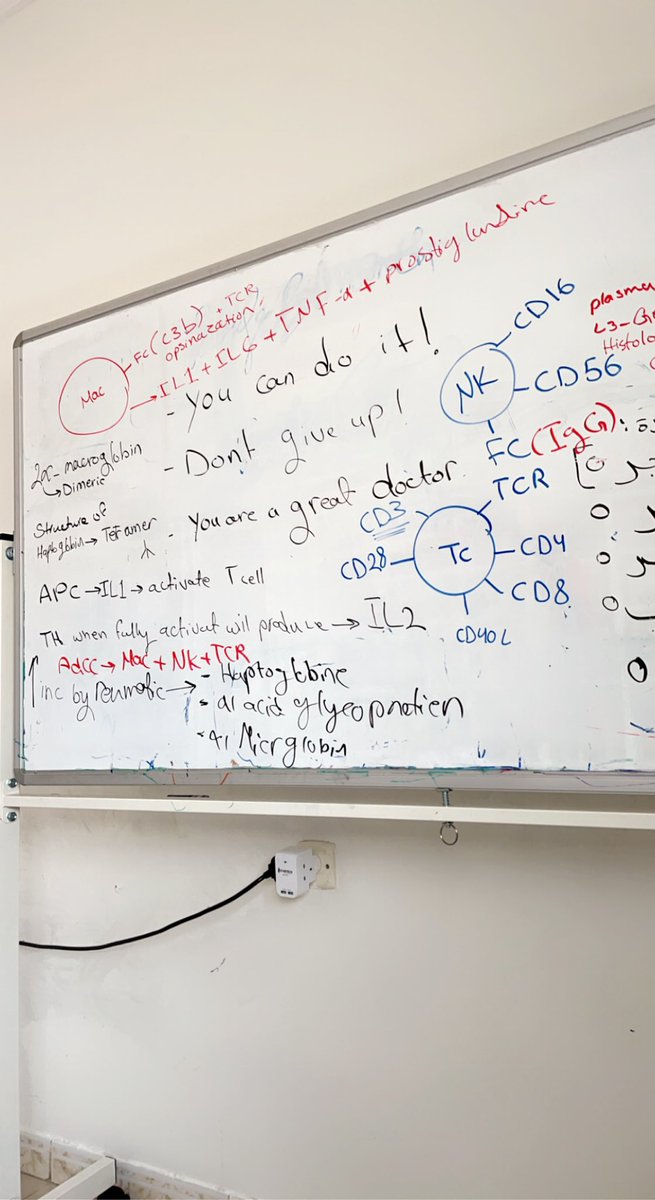 Mac
FC (C3b) + TCR
opsinazation
→ IL1 + IL6 + TNF-α + prostig landine
- You can do it!
- Don't give up!
- You are a great doctor
2α- macroglobin
↳ Dimeric
Structure of
Haptoglobin → Tetramer
APC → IL1 → activate T cell
TH when fully activat will produce → IL2
AdCC → Mac + NK + TCR
↑ inc by → - Haptoglobine
- α1 acid glycoprotien
- α1 Micrglobin
NK
CD16
CD56
FC (IgG):
Tc
TCR
CD3
CD28
CD4
CD8
CD40L
plasma
Histolo